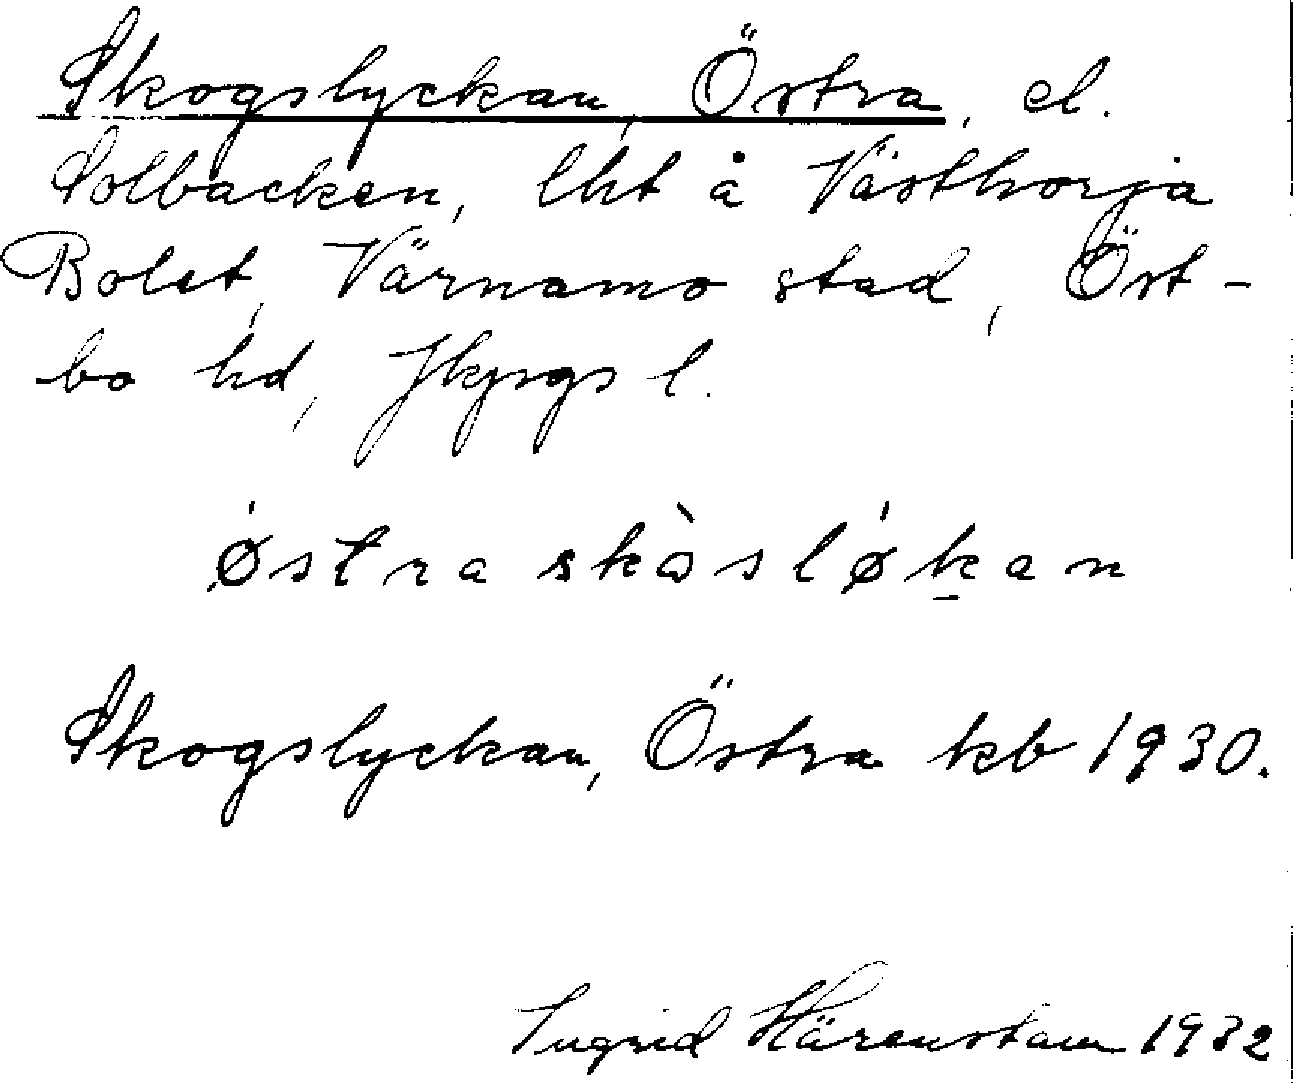 Skogslyckan, Östra, el.
Solbacken, lht å Västhorja
Bolet, Värnamo stad, Öst-
bo hd, Jkpgs l.
ǿstra skò̀slǿkan
Skogslyckan, Östra kb 1930.
Ingrid Härenstam 1932